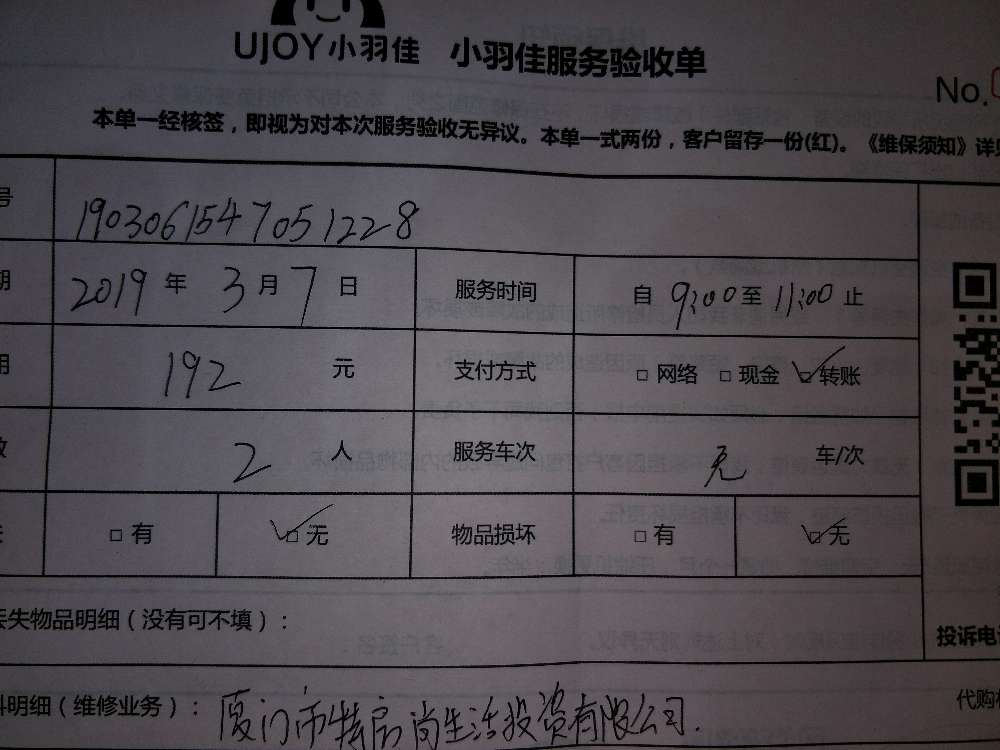 UJOY小羽佳 小羽佳服务验收单
No.
本单一经核签，即视为对本次服务验收无异议。本单一式两份，客户留存一份(红)。《维保须知》详见
号 1903061547051228
期 2019 年 3 月 7 日 服务时间 自 9:00 至 11:00 止
用 192 元 支付方式 □ 网络 □ 现金 ☑ 转账
数 2 人 服务车次 无 车/次
失 □ 有 ☑ 无 物品损坏 □ 有 ☑ 无
丢失物品明细（没有可不填）：
投诉电话
料明细（维修业务）： 厦门市特房尚生活投资有限公司.
代购